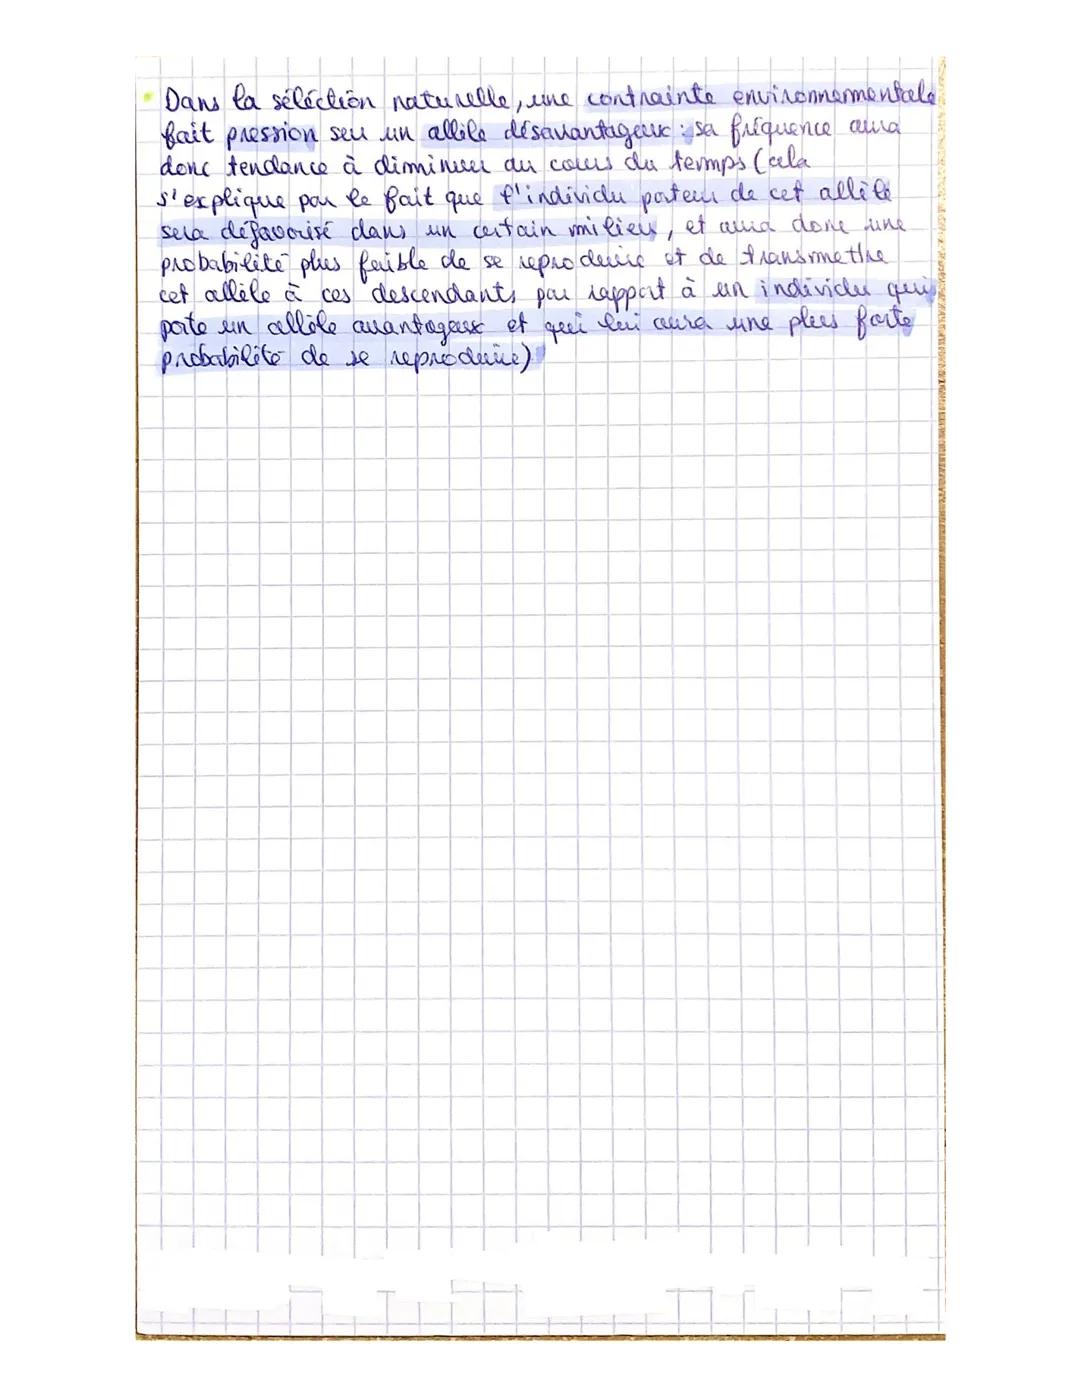 Dans la séléction naturelle, une contrainte environnementale
fait pression sur un allèle désavantageux : sa fréquence aura
donc tendance à diminuer au cours du temps (cela
s'explique par le fait que l'individu porteur de cet allèle
sera défavorisé dans un certain milieu, et aura donc une
probabilité plus faible de se reproduire et de transmettre
cet allèle à ces descendants par rapport à un individu qui
porte un allèle avantageux et qui lui aura une plus forte
probabilité de se reproduire)